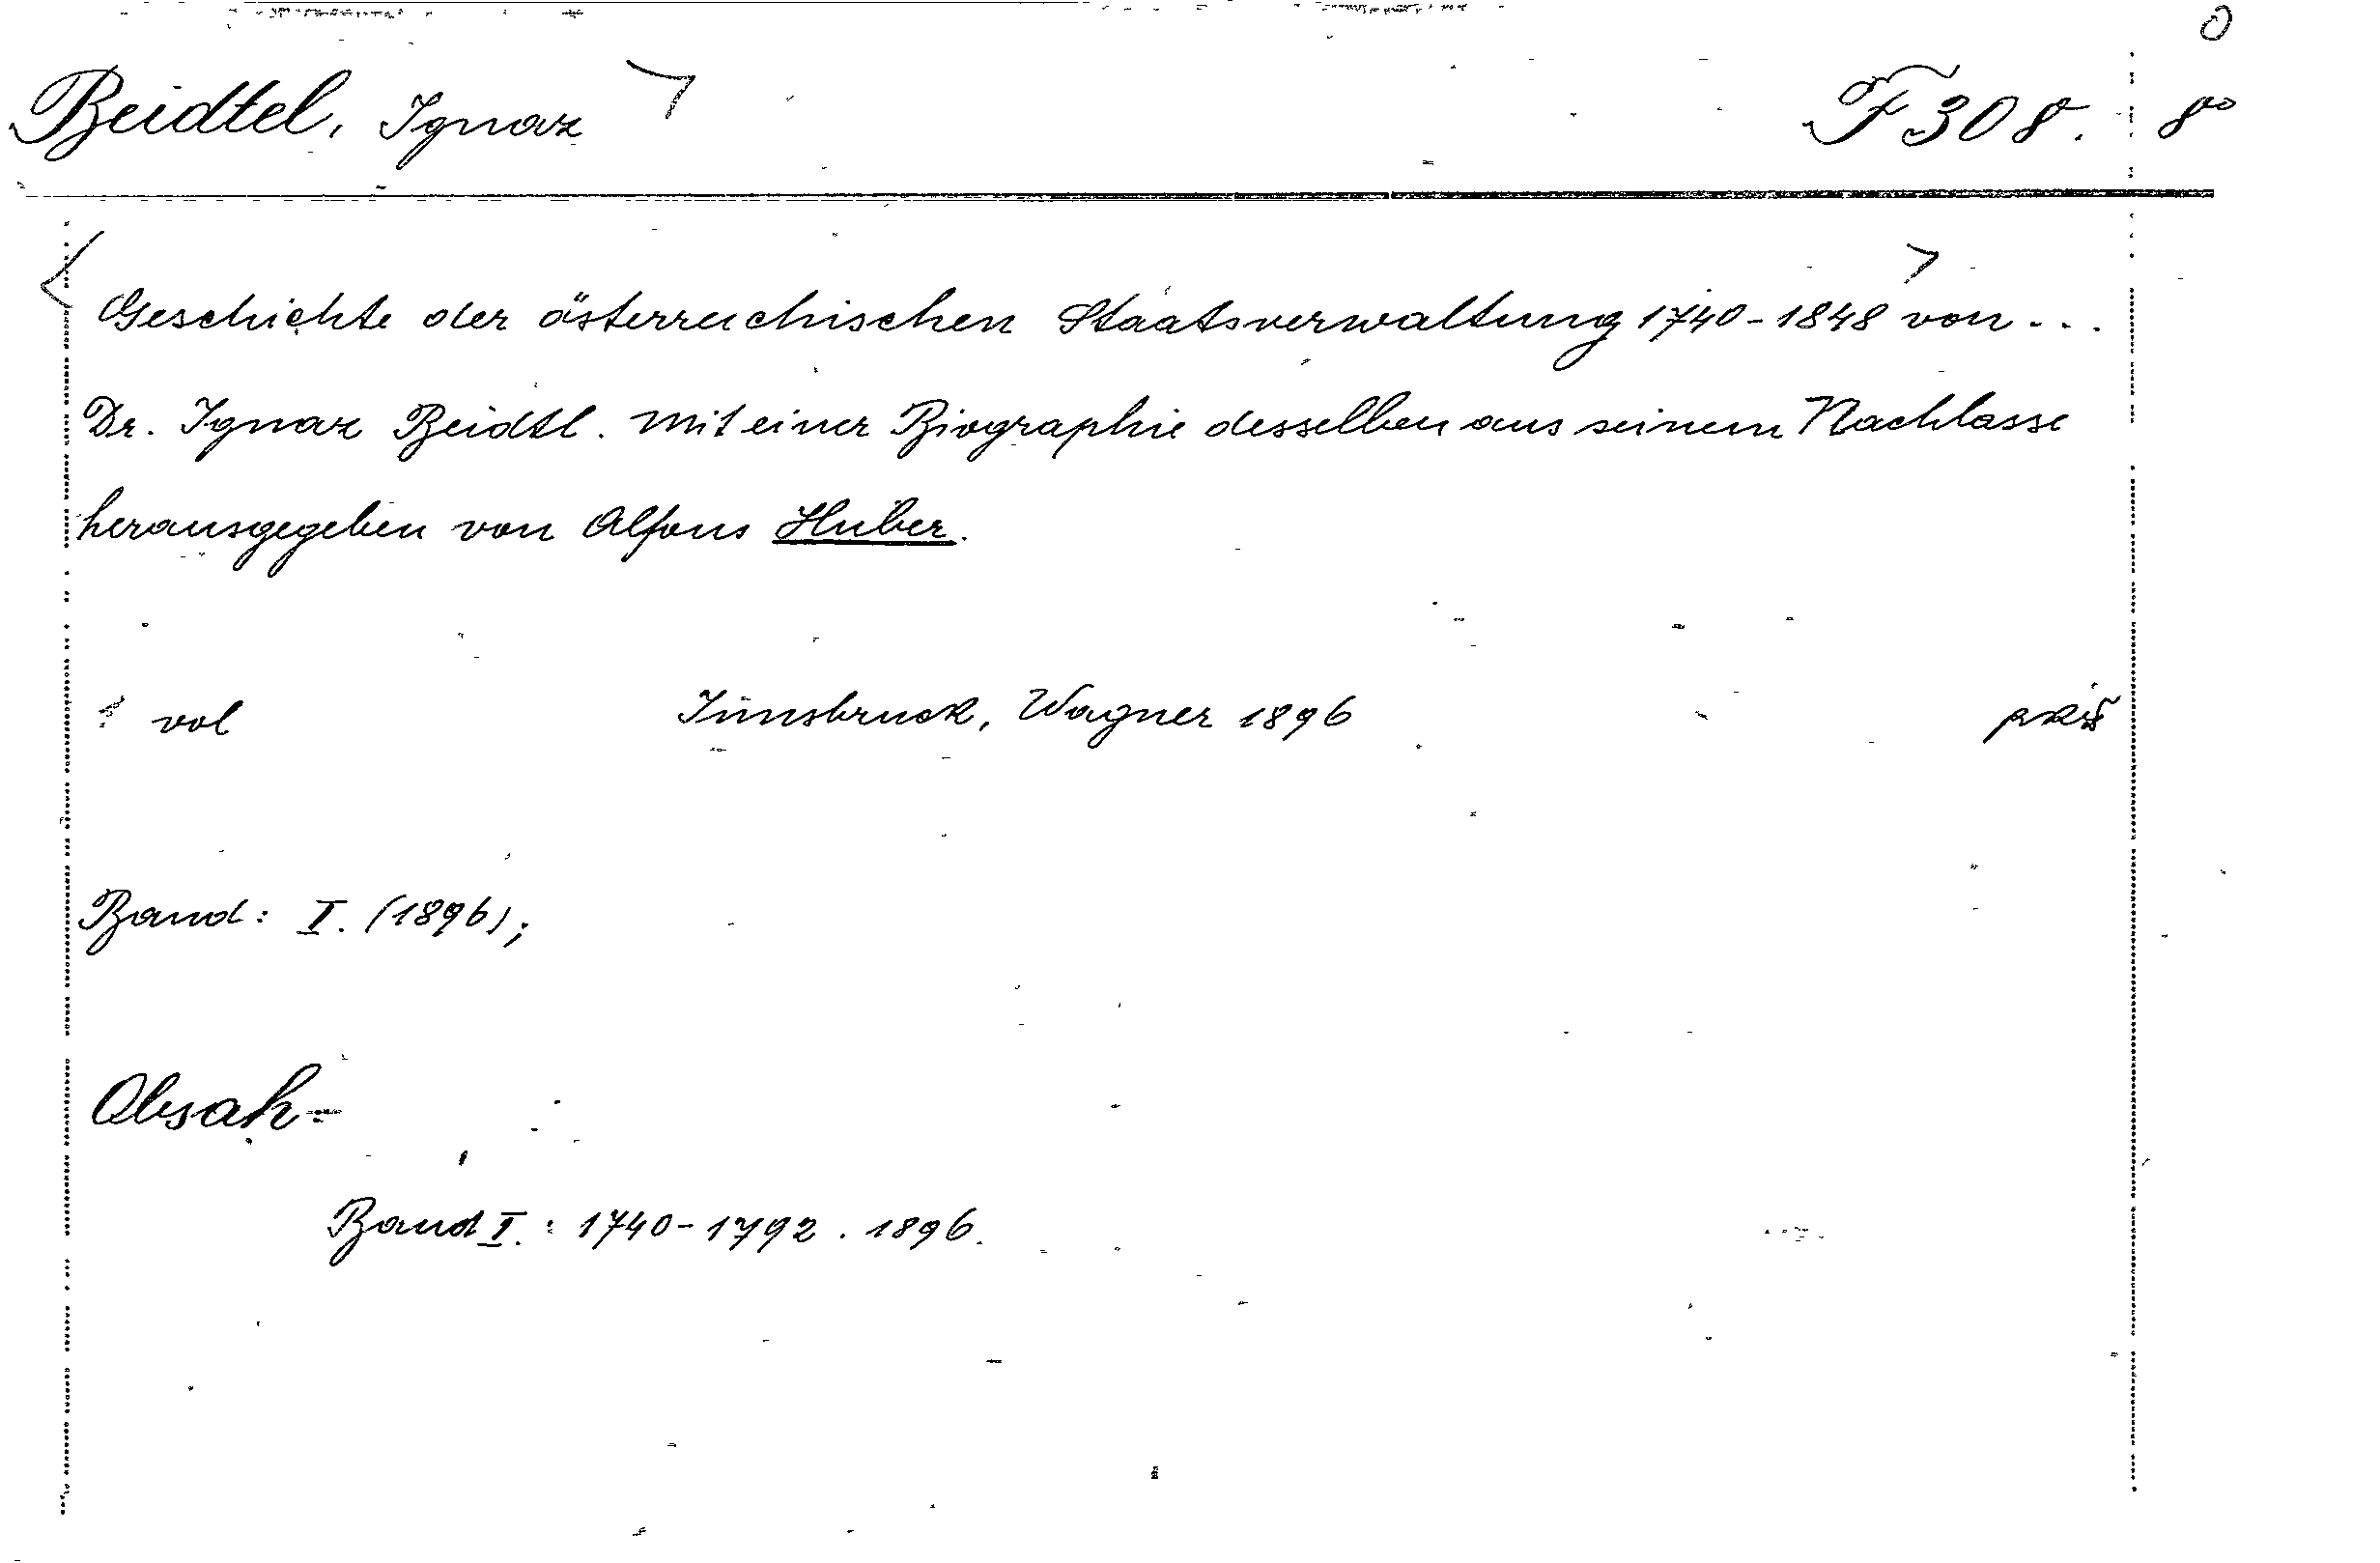 Beidtel, Ignaz F 308. 8°
Geschichte der österreichischen Staatsverwaltung 1740-1848 von...
Dr. Ignaz Beidtl. Mit einer Biographie desselben aus seinem Nachlasse
herausgegeben von Alfons Huber.
vol Innsbruck, Wagner 1896
Band: I. (1896);
Obsah-
Band I.: 1740-1792. 1896.